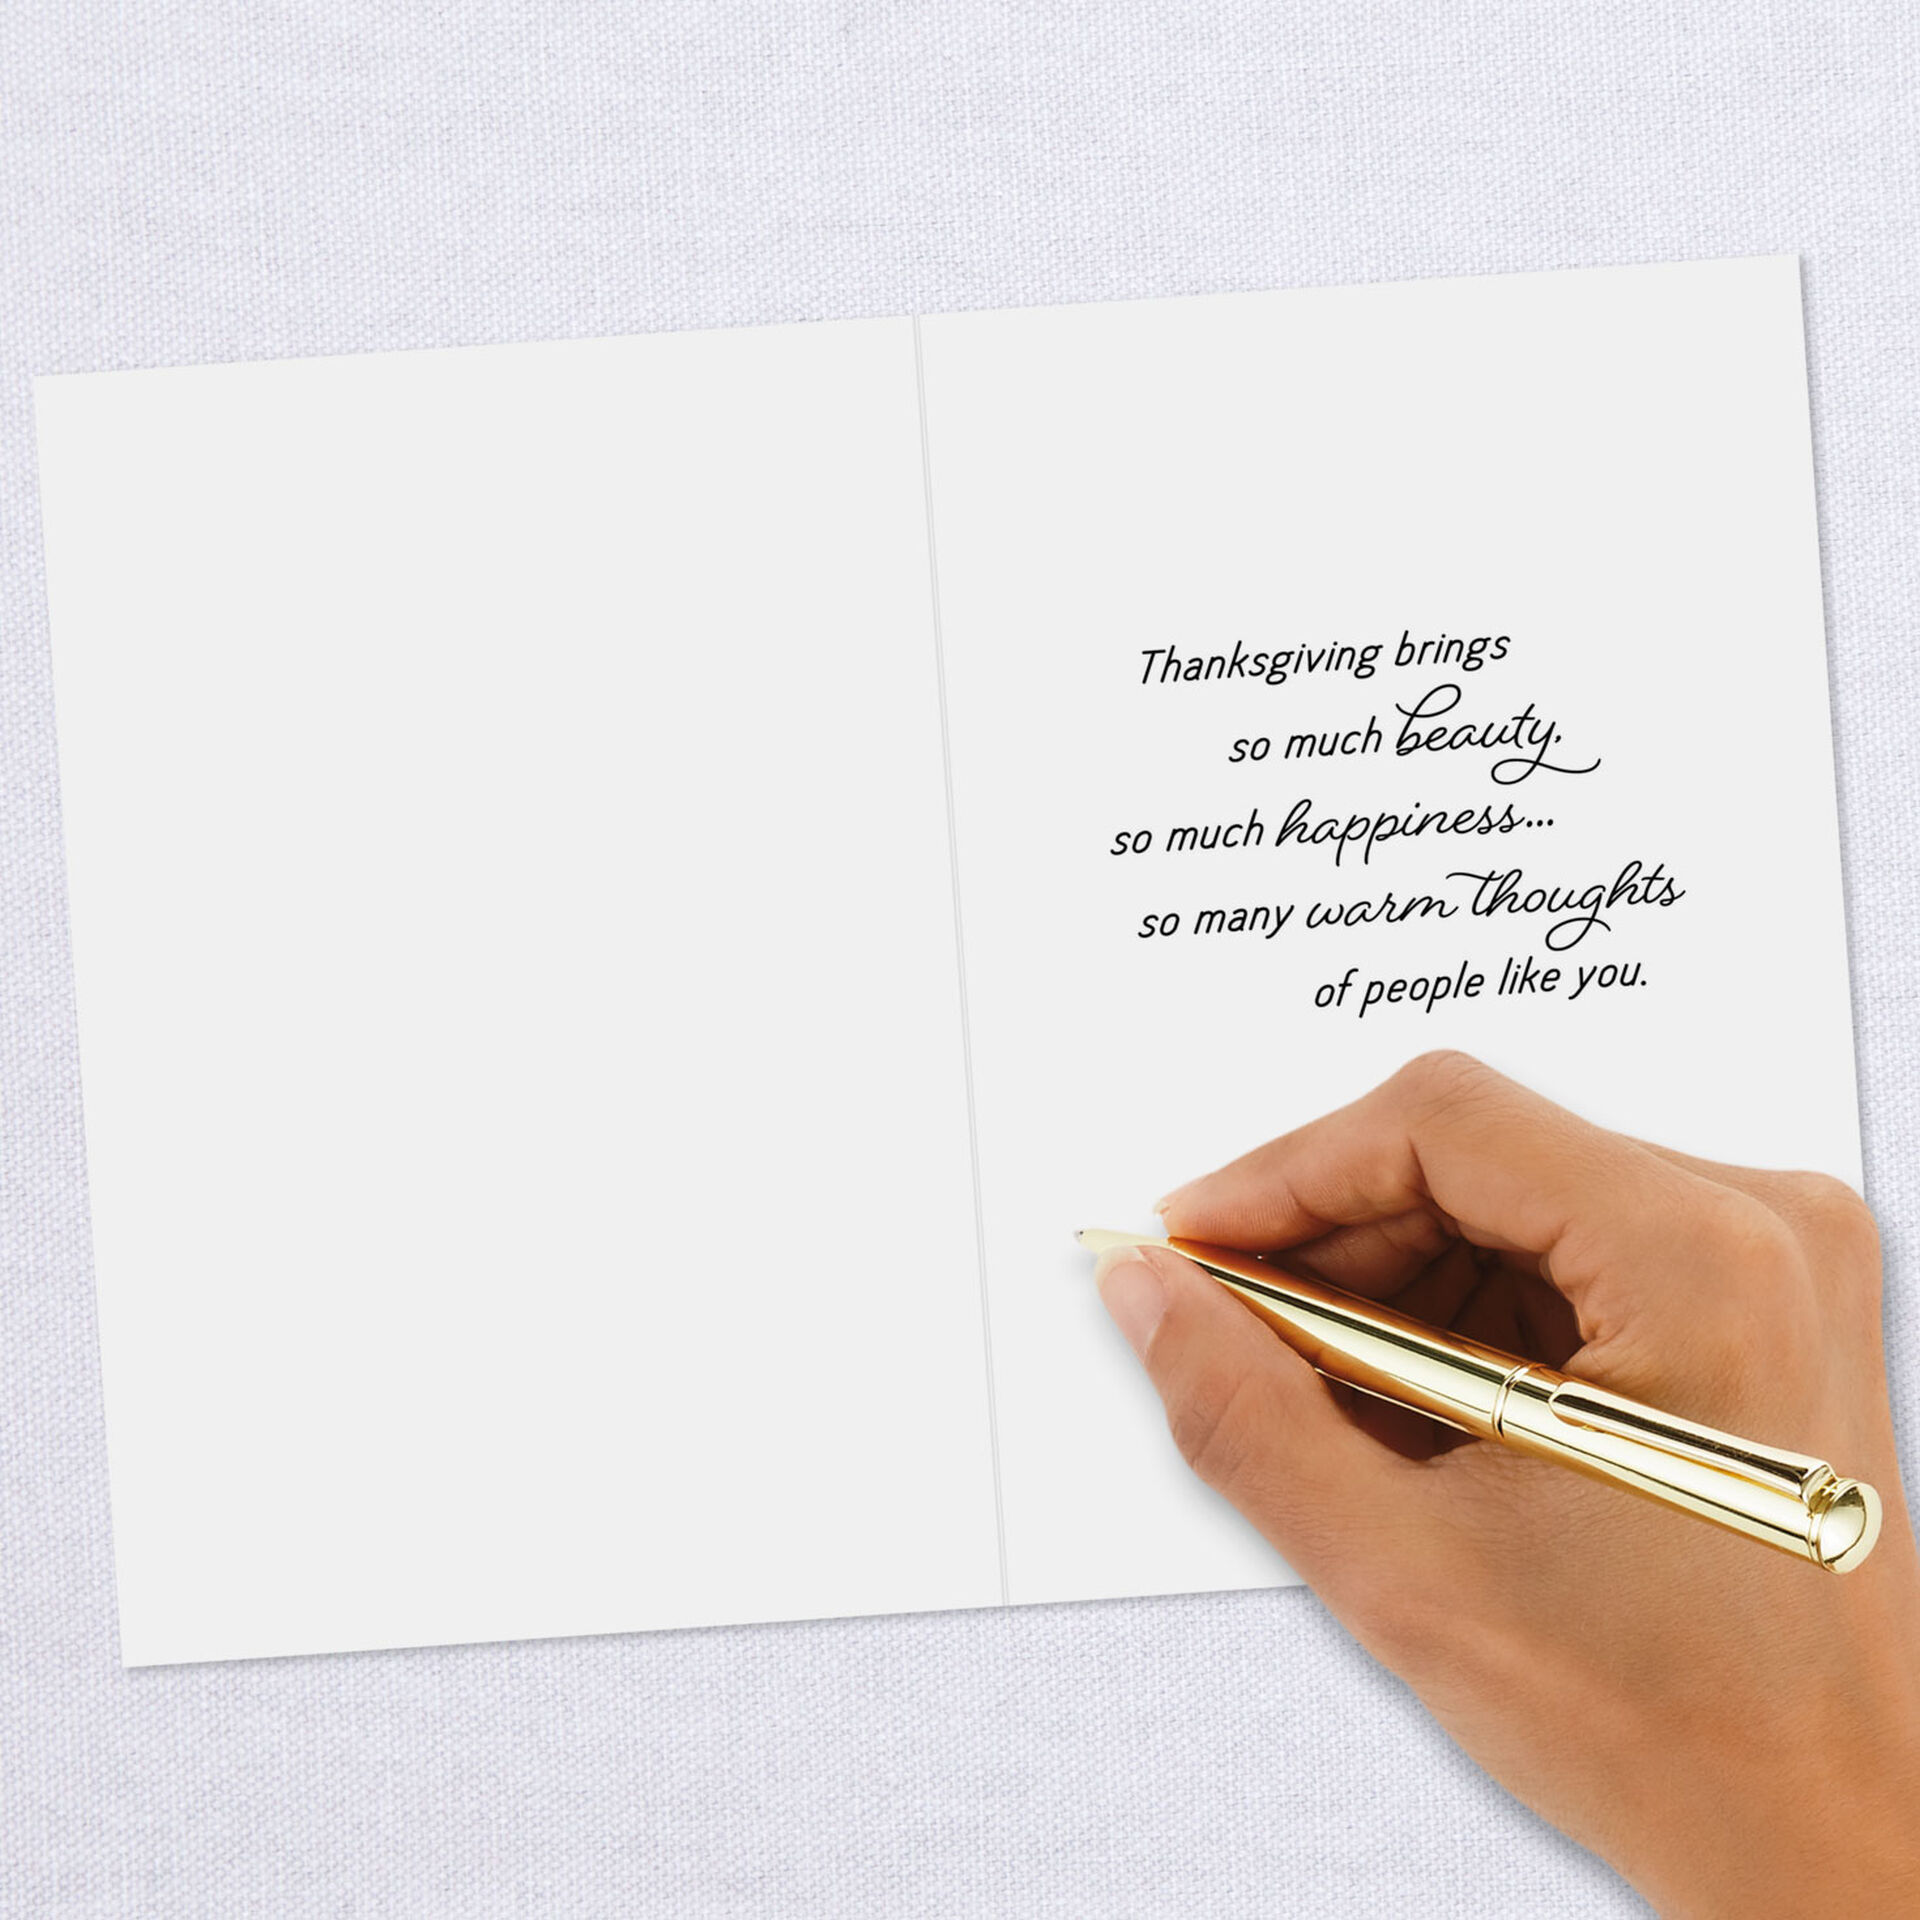 Thanksgiving brings
so much beauty,
so much happiness...
so many warm thoughts
of people like you.